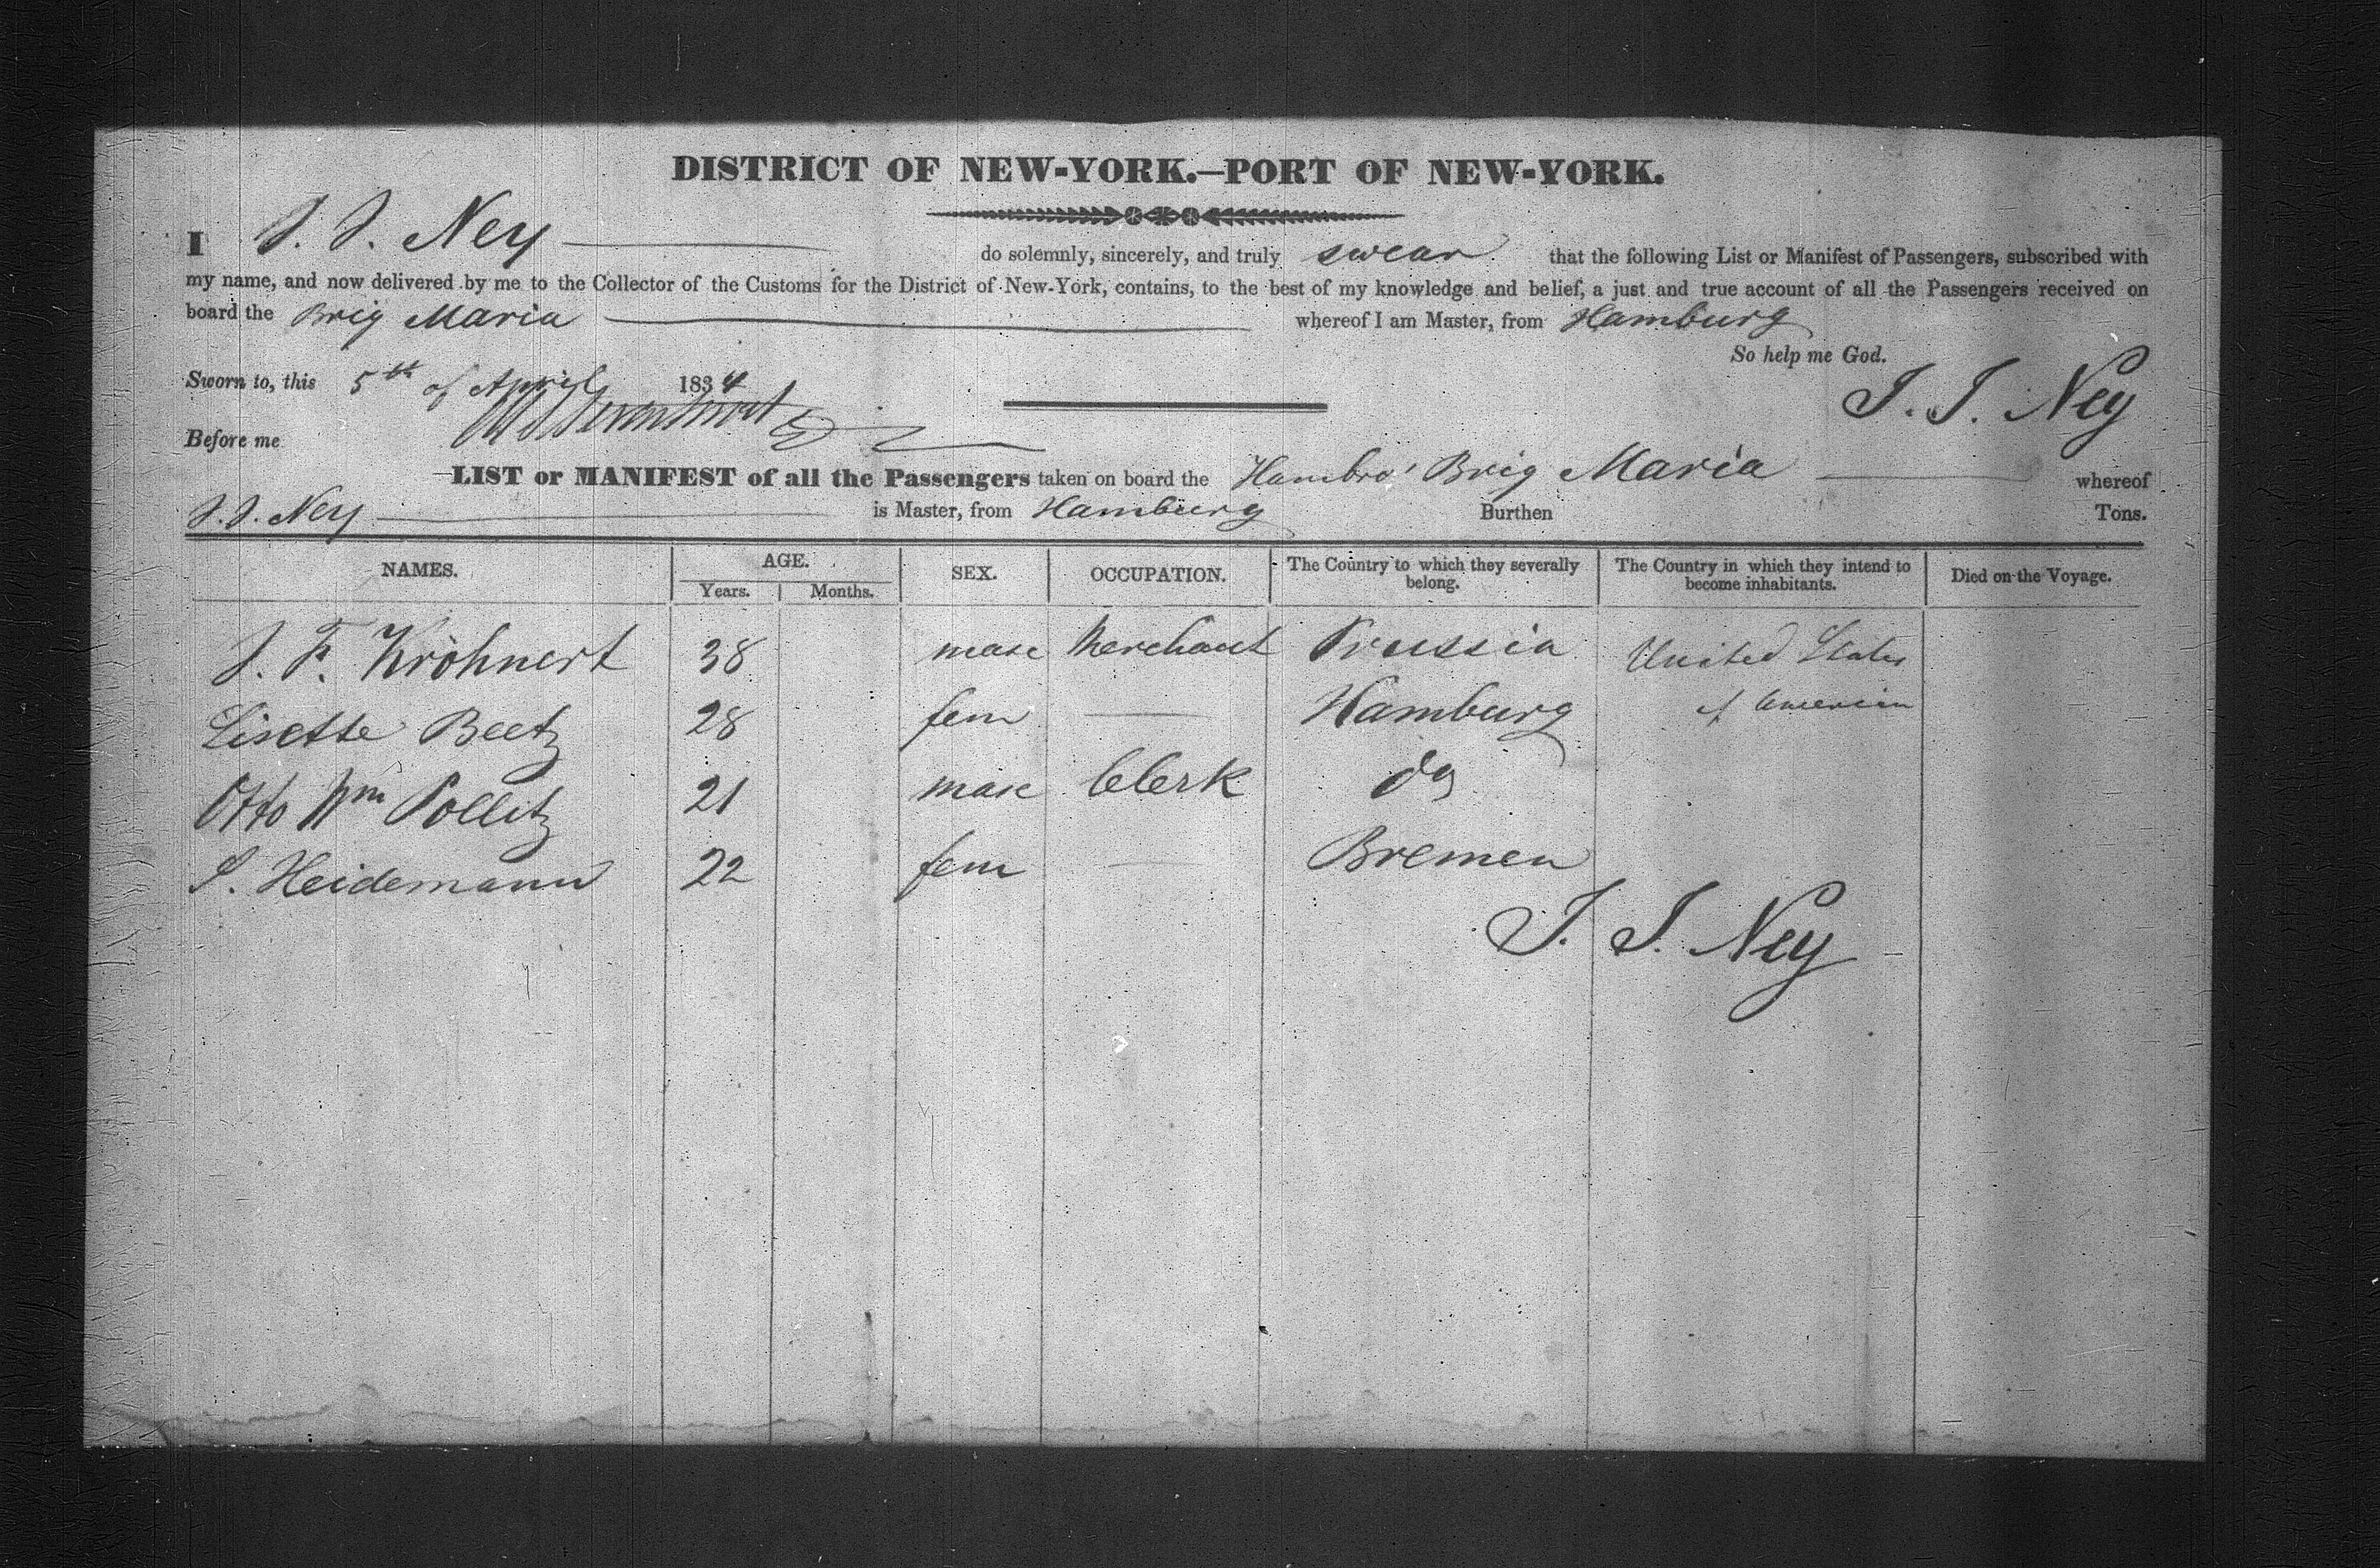 DISTRICT OF NEW-YORK.—PORT OF NEW-YORK.
I J. J. Ney do solemnly, sincerely, and truly swear that the following List or Manifest of Passengers, subscribed with
my name, and now delivered by me to the Collector of the Customs for the District of New-York, contains, to the best of my knowledge and belief, a just and true account of all the Passengers received on
board the Brig Maria whereof I am Master, from Hamburg
So help me God.
Sworn to, this 5th of April 1834
J. J. Ney
Before me
LIST or MANIFEST of all the Passengers taken on board the Hambro' Brig Maria whereof
J. J. Ney is Master, from Hamburg Burthen Tons.
NAMES. AGE. SEX. OCCUPATION. The Country to which they severally belong. The Country in which they intend to become inhabitants. Died on the Voyage.
Years. Months.
J. F. Kröhnert 38 masc Merchant Prussia United States
Lisette Beetz 28 fem — Hamburg of America
Otto Wm Pollitz 21 masc Clerk do
S. Heidemann 22 fem — Bremen
J. J. Ney